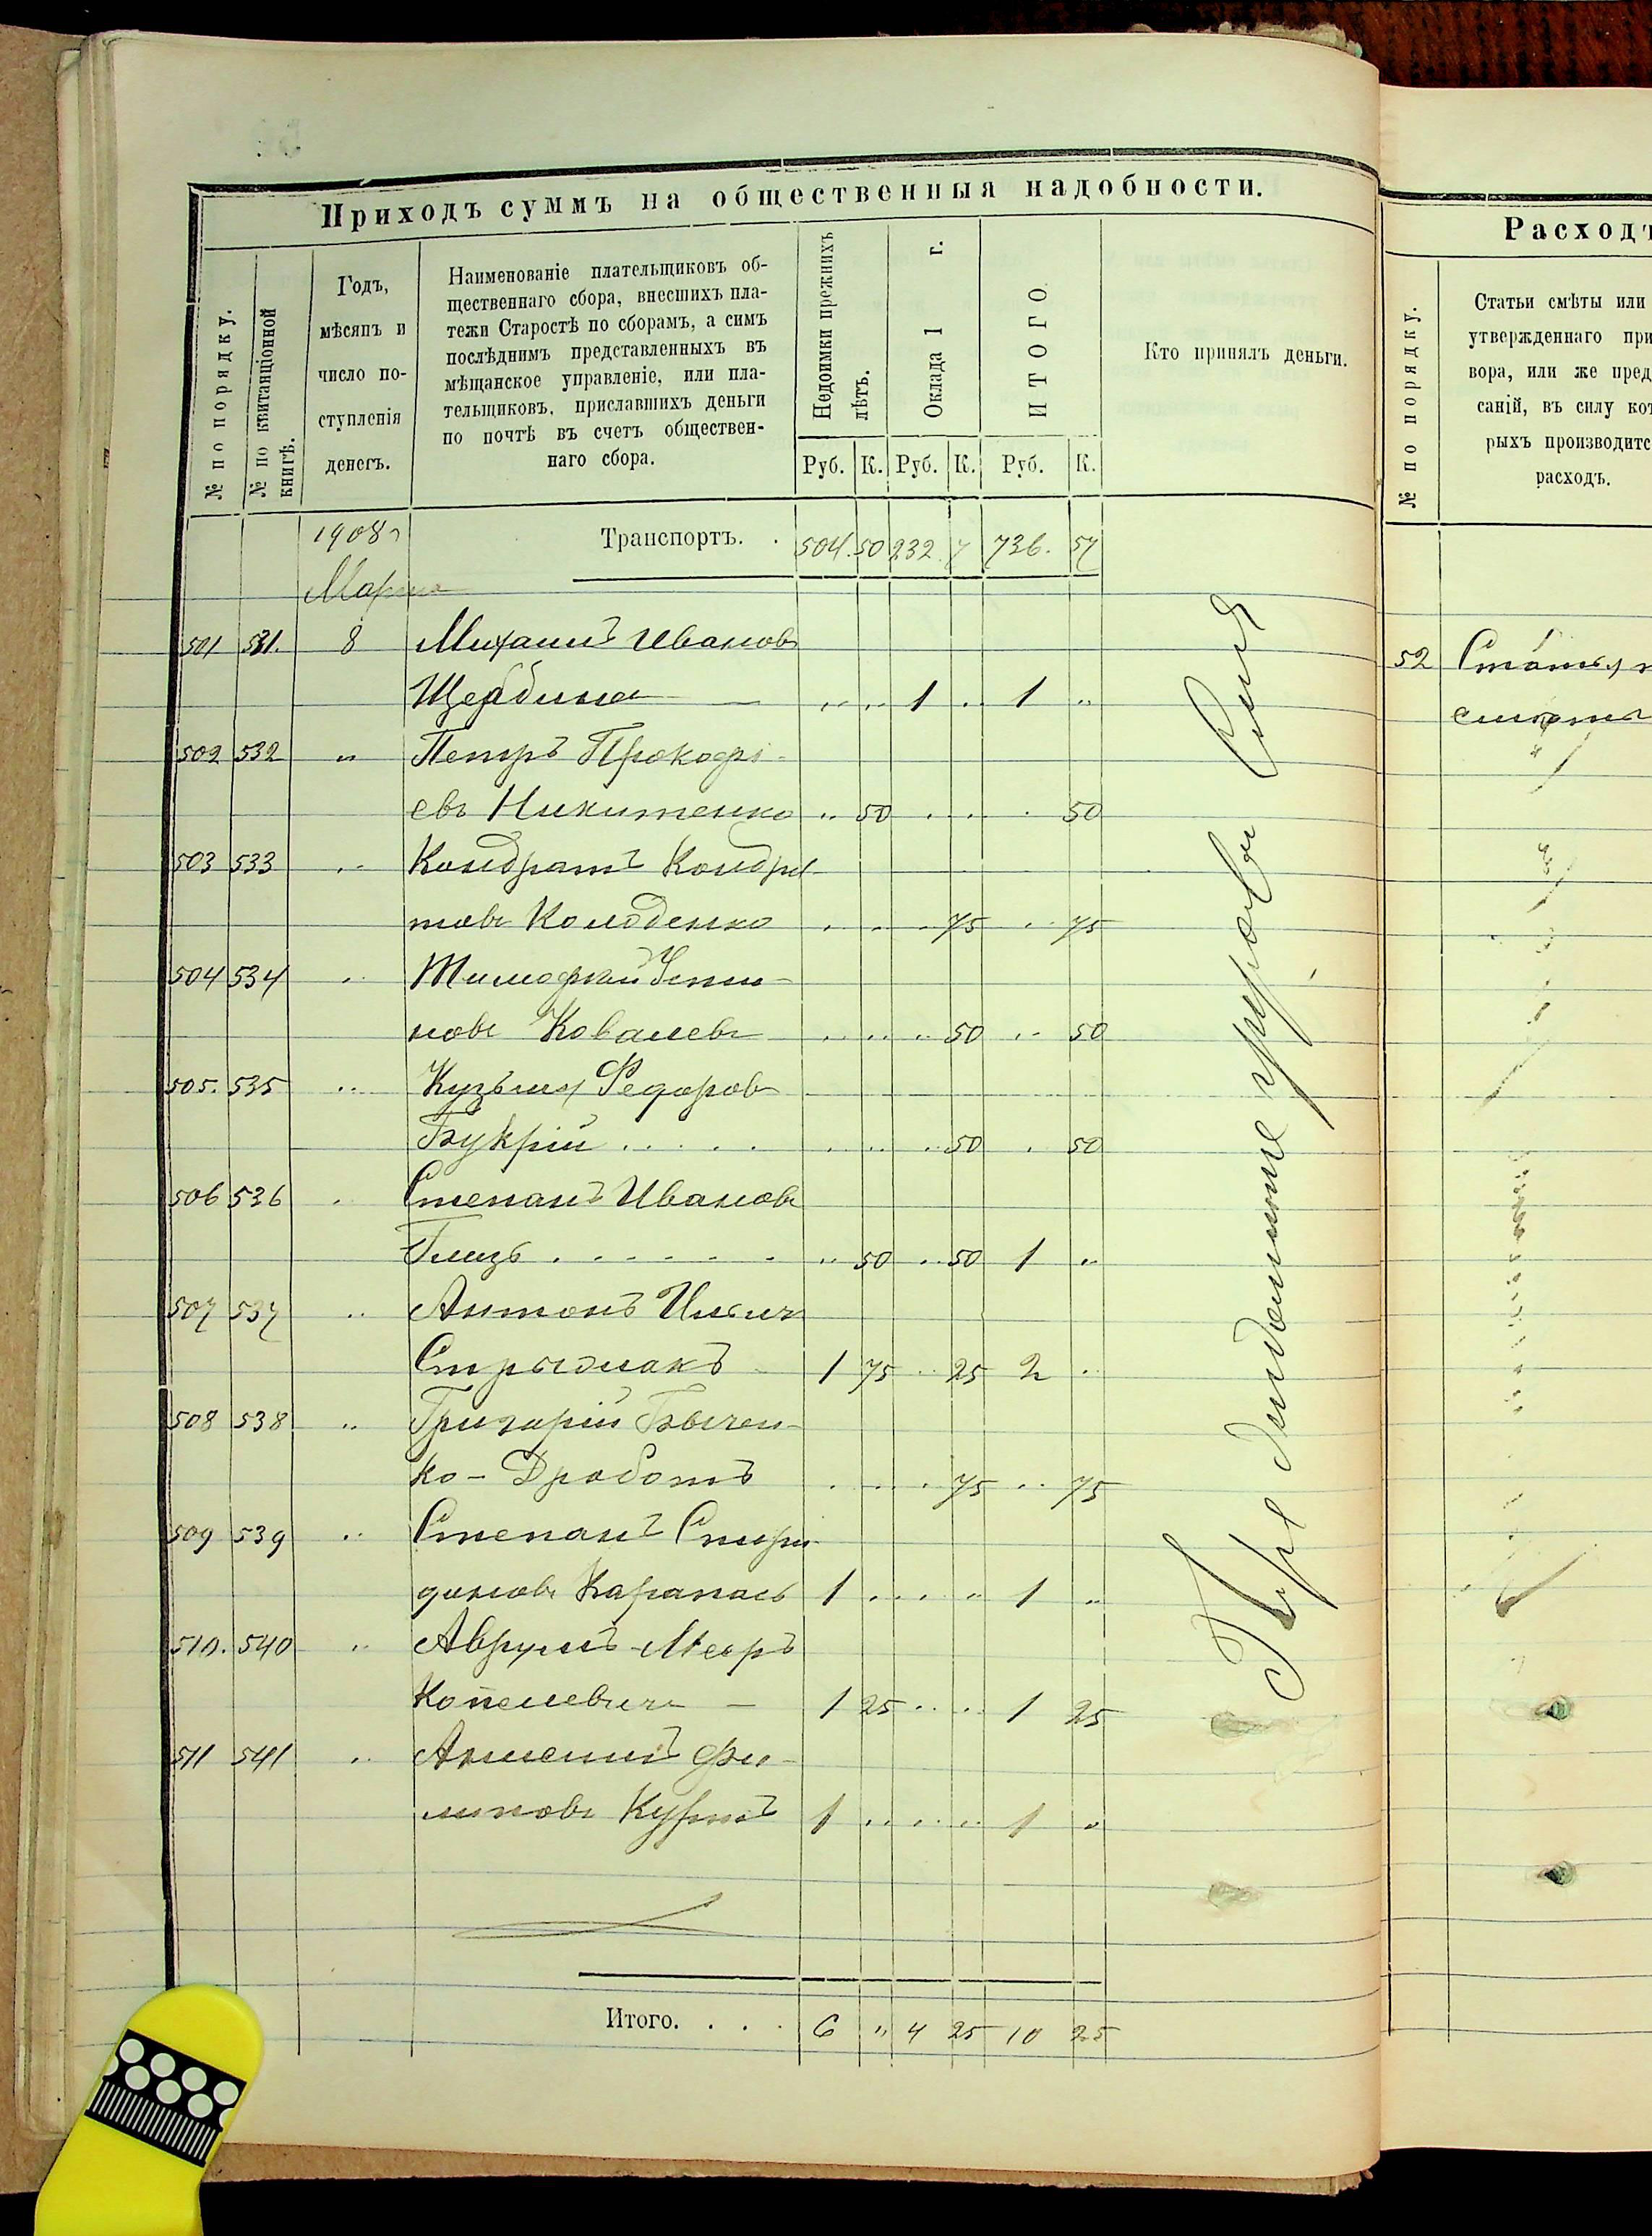 Приходъ суммъ на общественныя надобности.
№ по порядку.
№ по квитанціонной книгѣ.
Годъ,
мѣсяцъ и
число по-
ступленія
денегъ.
Наименованіе плательщиковъ об-
щественнаго сбора, внесшихъ пла-
тежи Старостѣ по сборамъ, а симъ
послѣднимъ представленныхъ въ
мѣщанское управленіе, или пла-
тельщиковъ, приславшихъ деньги
по почтѣ въ счетъ обществен-
наго сбора.
Недоимки прежнихъ лѣтъ.
Оклада 1 г.
ИТОГО.
Кто принялъ деньги.
Руб. К. Руб. К. Руб. К.
1908 г Транспортъ. . 504. 50 232. 7 736. 57
Марта
501 531. 8 Михаилъ Ивановъ
Щербина — " " 1 " 1 "
502 532 " Петръ Прокофі-
евъ Никитенко " 50 . . . 50
503 533 " Кондратъ Кондра-
товъ Колоденко . . . 75 . . 75
504 534 " Тимофей Усти-
новъ Ковалевъ . . . 50 . . 50
505. 535 " Кузьма Федоровъ
Букрій . . . . . . . 50 . 50
506 536 " Степанъ Ивановъ
Глизь . . . . . . " 50 . 50 1 "
507 537 " Антонъ Ильичъ
Стрыжакъ 1 75 . 25 2 "
508 538 " Григорій Бычен-
ко-Дработъ . . . 75 . . 75
509 539 " Степанъ Спири-
доновъ Карапасъ 1 . . . " 1 "
510. 540 " Аврумъ-Мееръ
Копелевичъ — 1 25 . . . 1 25
511 541 " Фи-
липовъ 1 . . . . 1 "
Итого. . . . 6 " 4 25 10 25
Расходъ
№ по порядку.
Статьи смѣты или
утвержденнаго при
вора, или же пред
саній, въ силу кот
рыхъ производитс
расходъ.
52 Статья
смѣты